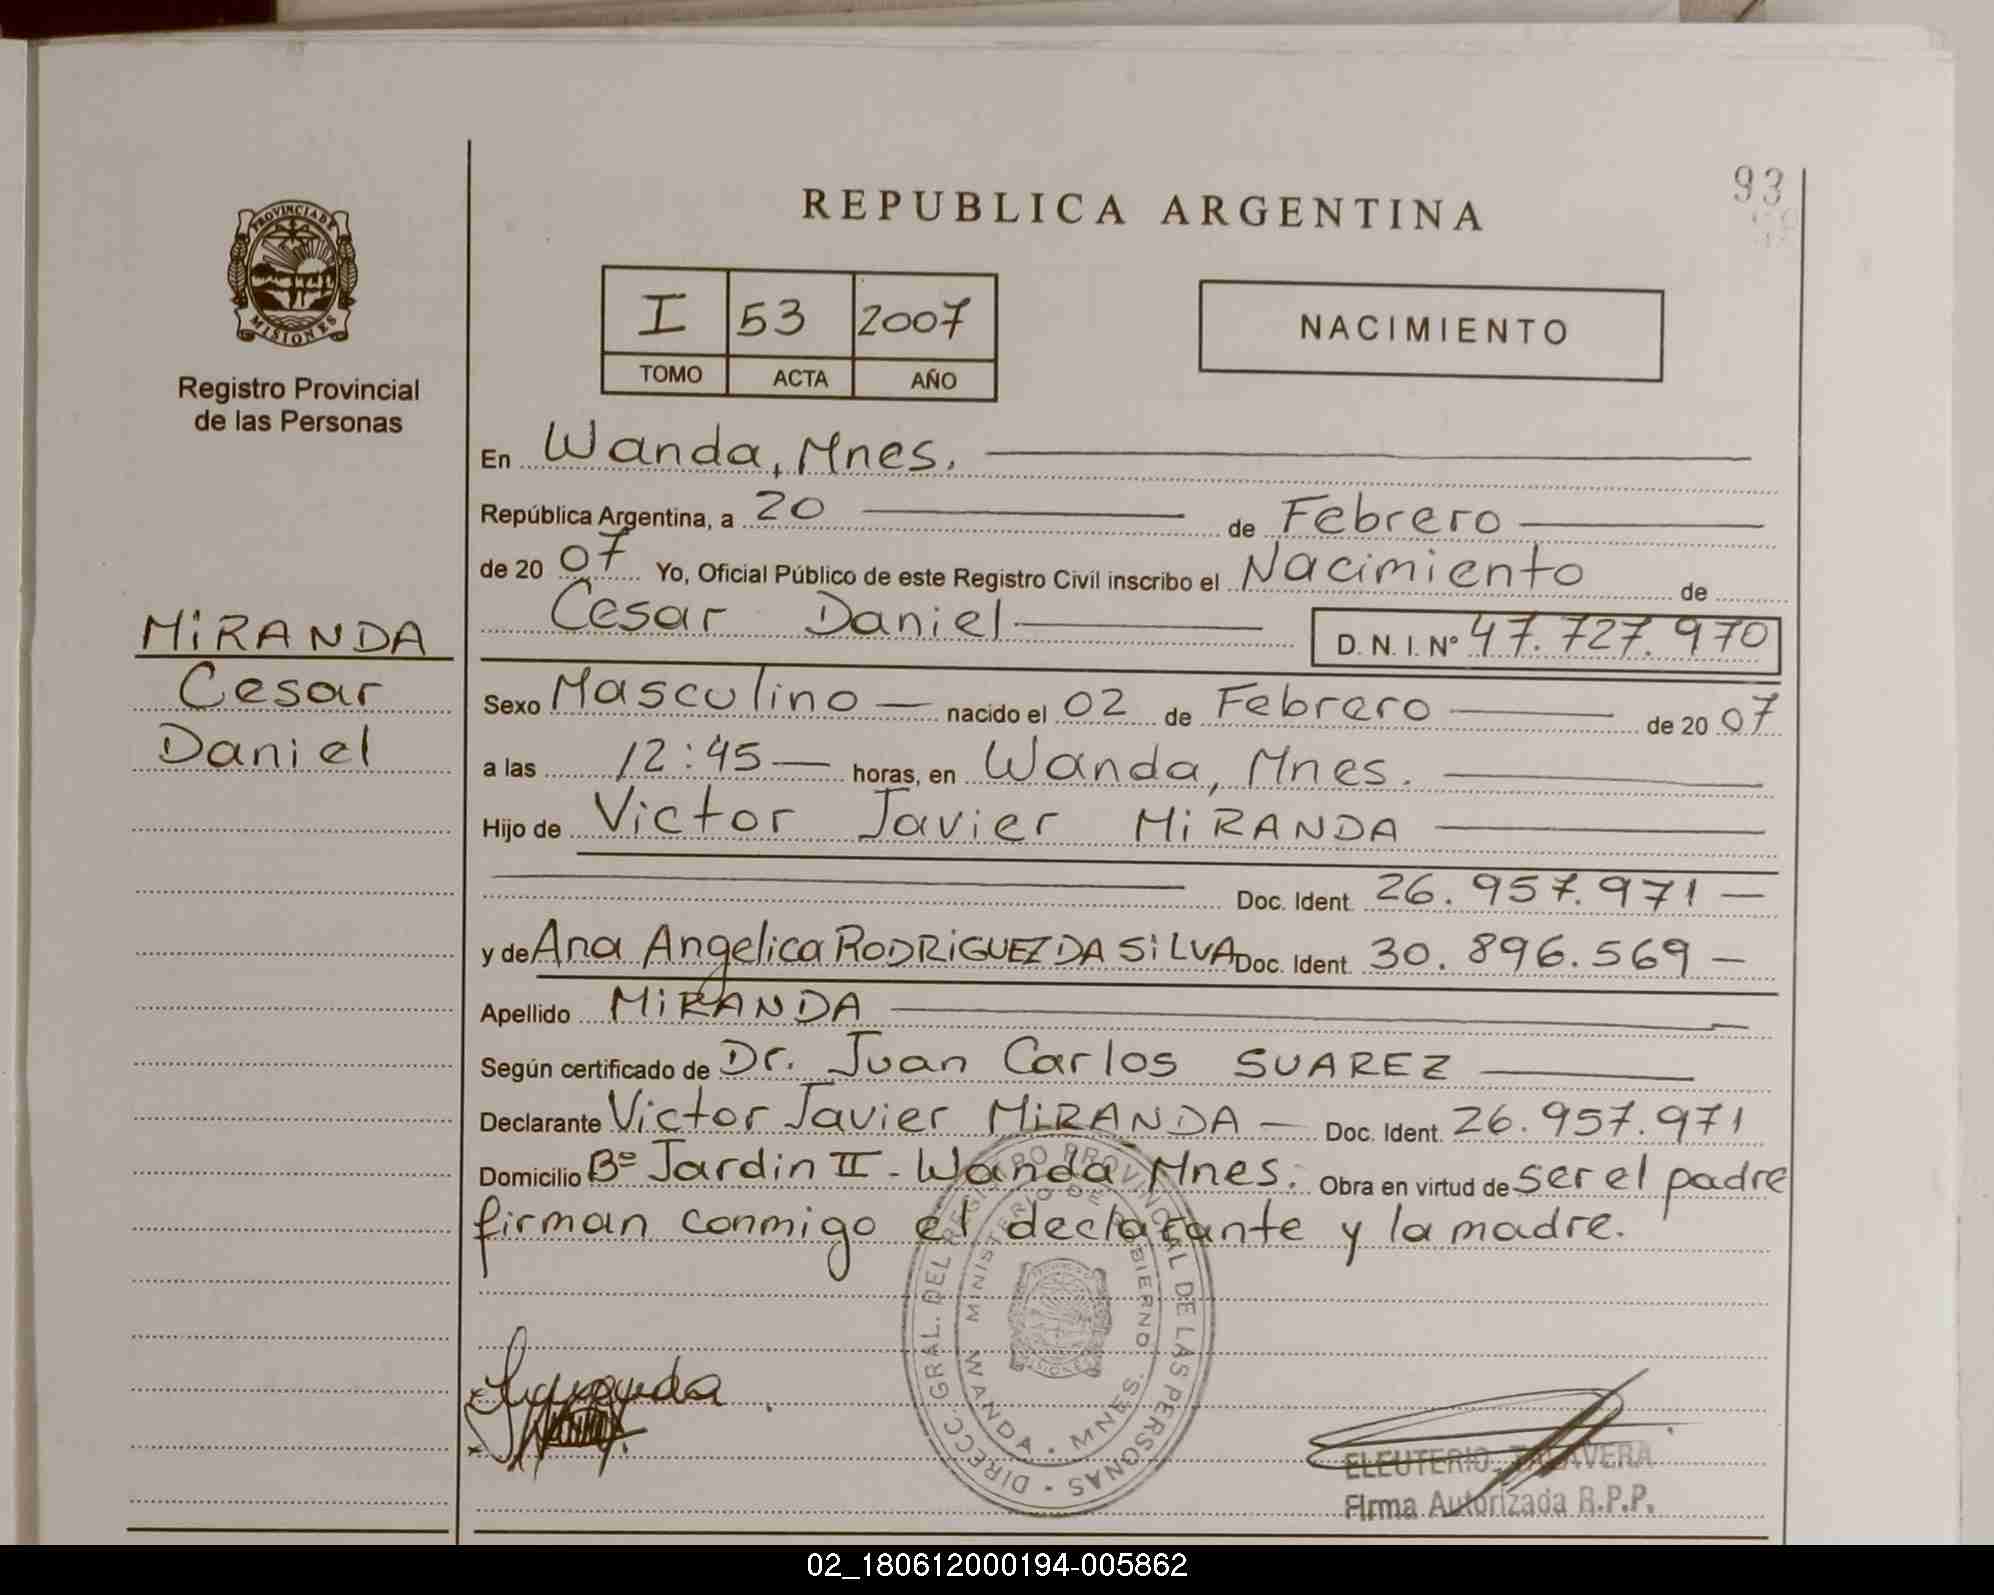 REPUBLICA ARGENTINA
93
PROVINCIA DE
MISIONES
Registro Provincial
de las Personas
I 53 2007
TOMO ACTA AÑO
NACIMIENTO
En Wanda, Mnes.
República Argentina, a 20 de Febrero
de 20 07 Yo, Oficial Público de este Registro Civil inscribo el Nacimiento de
Cesar Daniel D. N. I. Nº 47.727.970
MiRANDA
Cesar
Daniel
Sexo Masculino nacido el 02 de Febrero de 20 07
a las 12:45 horas, en Wanda, Mnes.
Hijo de Victor Javier MiRANDA
Doc. Ident. 26.957.971
y de Ana Angelica RODRiGUEZ DA SiLVA Doc. Ident. 30.896.569
Apellido MiRANDA
Según certificado de Dr. Juan Carlos SUAREZ
Declarante Victor Javier MiRANDA Doc. Ident. 26.957.971
Domicilio Bº Jardin II - Wanda Mnes. Obra en virtud de ser el padre
firman conmigo el declarante y la madre.
DIRECC. GRAL. DEL REGISTRO PROVINCIAL DE LAS PERSONAS
MINISTERIO DE GOBIERNO
WANDA · MNES.
MISIONES
ELEUTERIO TALAVERA
Firma Autorizada R.P.P.
02_180612000194-005862